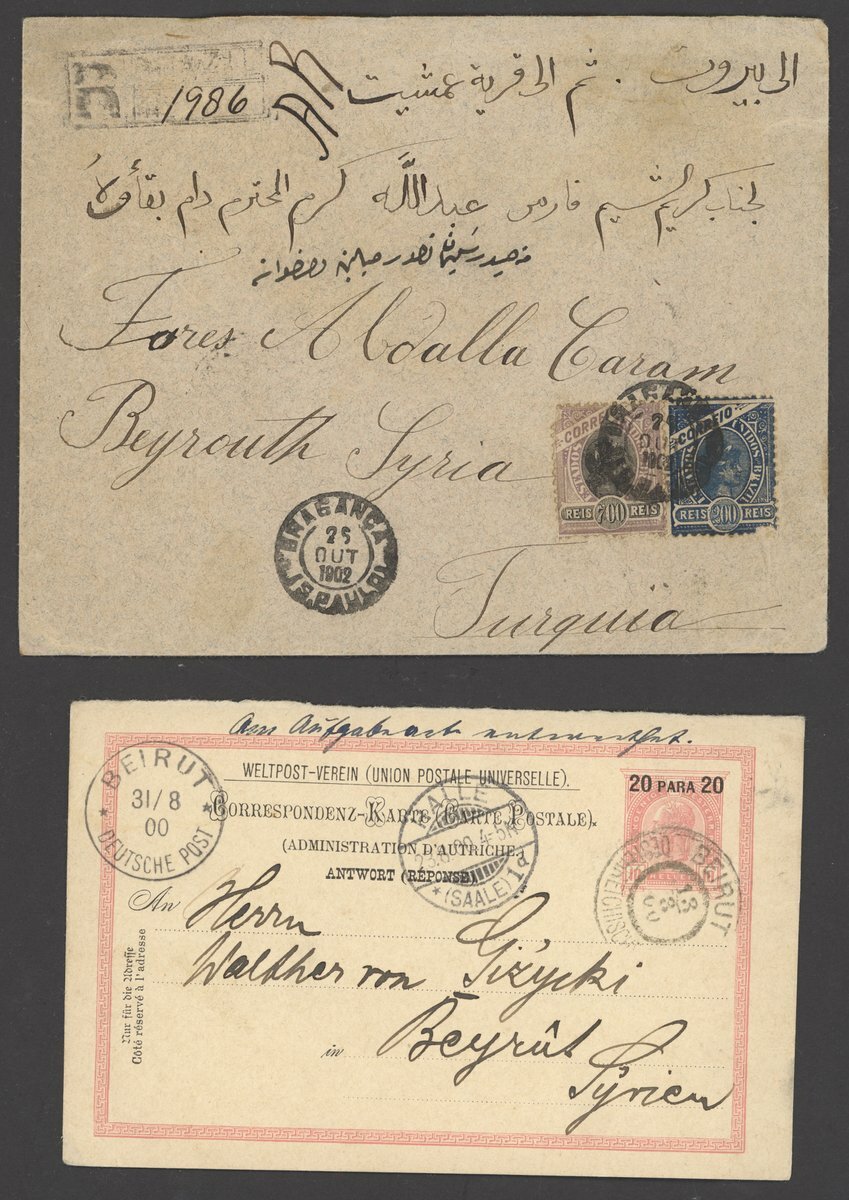 الى بيروت . ثم الى قرية عمشيت
R
1986
AR
لجناب كريم الشيم فارس عبدالله كرم المحترم دام بقاؤه
Fares Abdalla Caram
Beyrouth Syria
Turquia
CORREIO
ESTADOS UNIDOS BRAZIL
REIS 700 REIS
CORREIO
ESTADOS UNIDOS BRAZIL
REIS 200 REIS
BRAGANÇA
25
OUT
1902
(S. PAULO)
Am Aufgabeort entwerthet.
WELTPOST-VEREIN (UNION POSTALE UNIVERSELLE).
CORRESPONDENZ-KARTE (CARTE POSTALE).
(ADMINISTRATION D'AUTRICHE.)
ANTWORT (RÉPONSE)
20 PARA 20
10 HELLER 10
BEIRUT
31/8
00
DEUTSCHE POST
HALLE
23.8.00.4-5N.
*(SAALE)1d
BEIRUT
An Herrn
Walther von Gizycki
in Beyrût
Syrien
Nur für die Adresse
Côté réservé à l'adresse